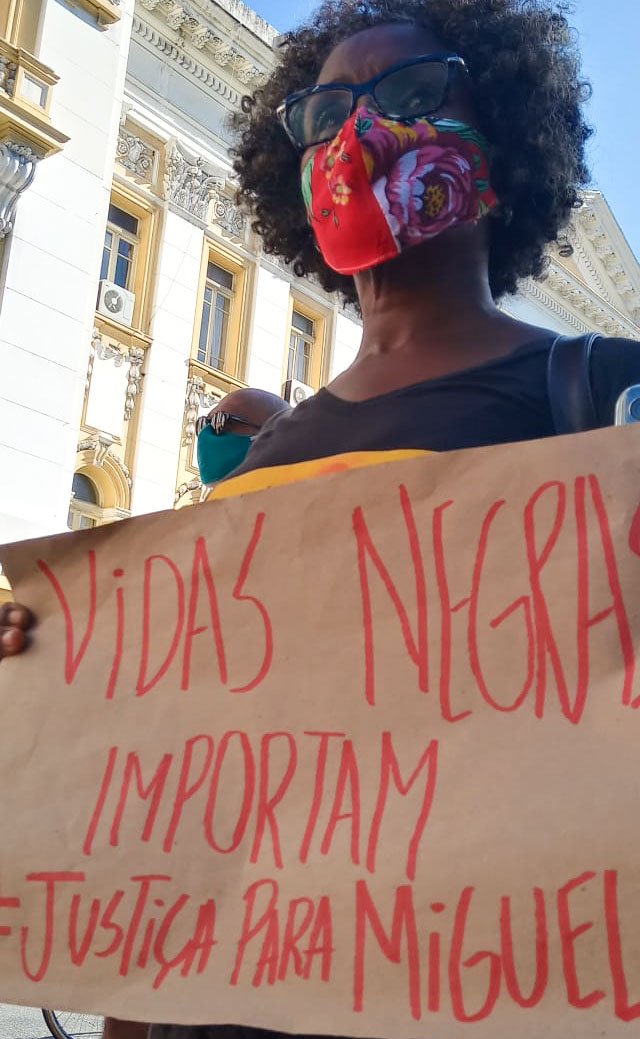 ViDAS NEGRAS
IMPORTAM
#JUSTiÇA PARA MiGUEL